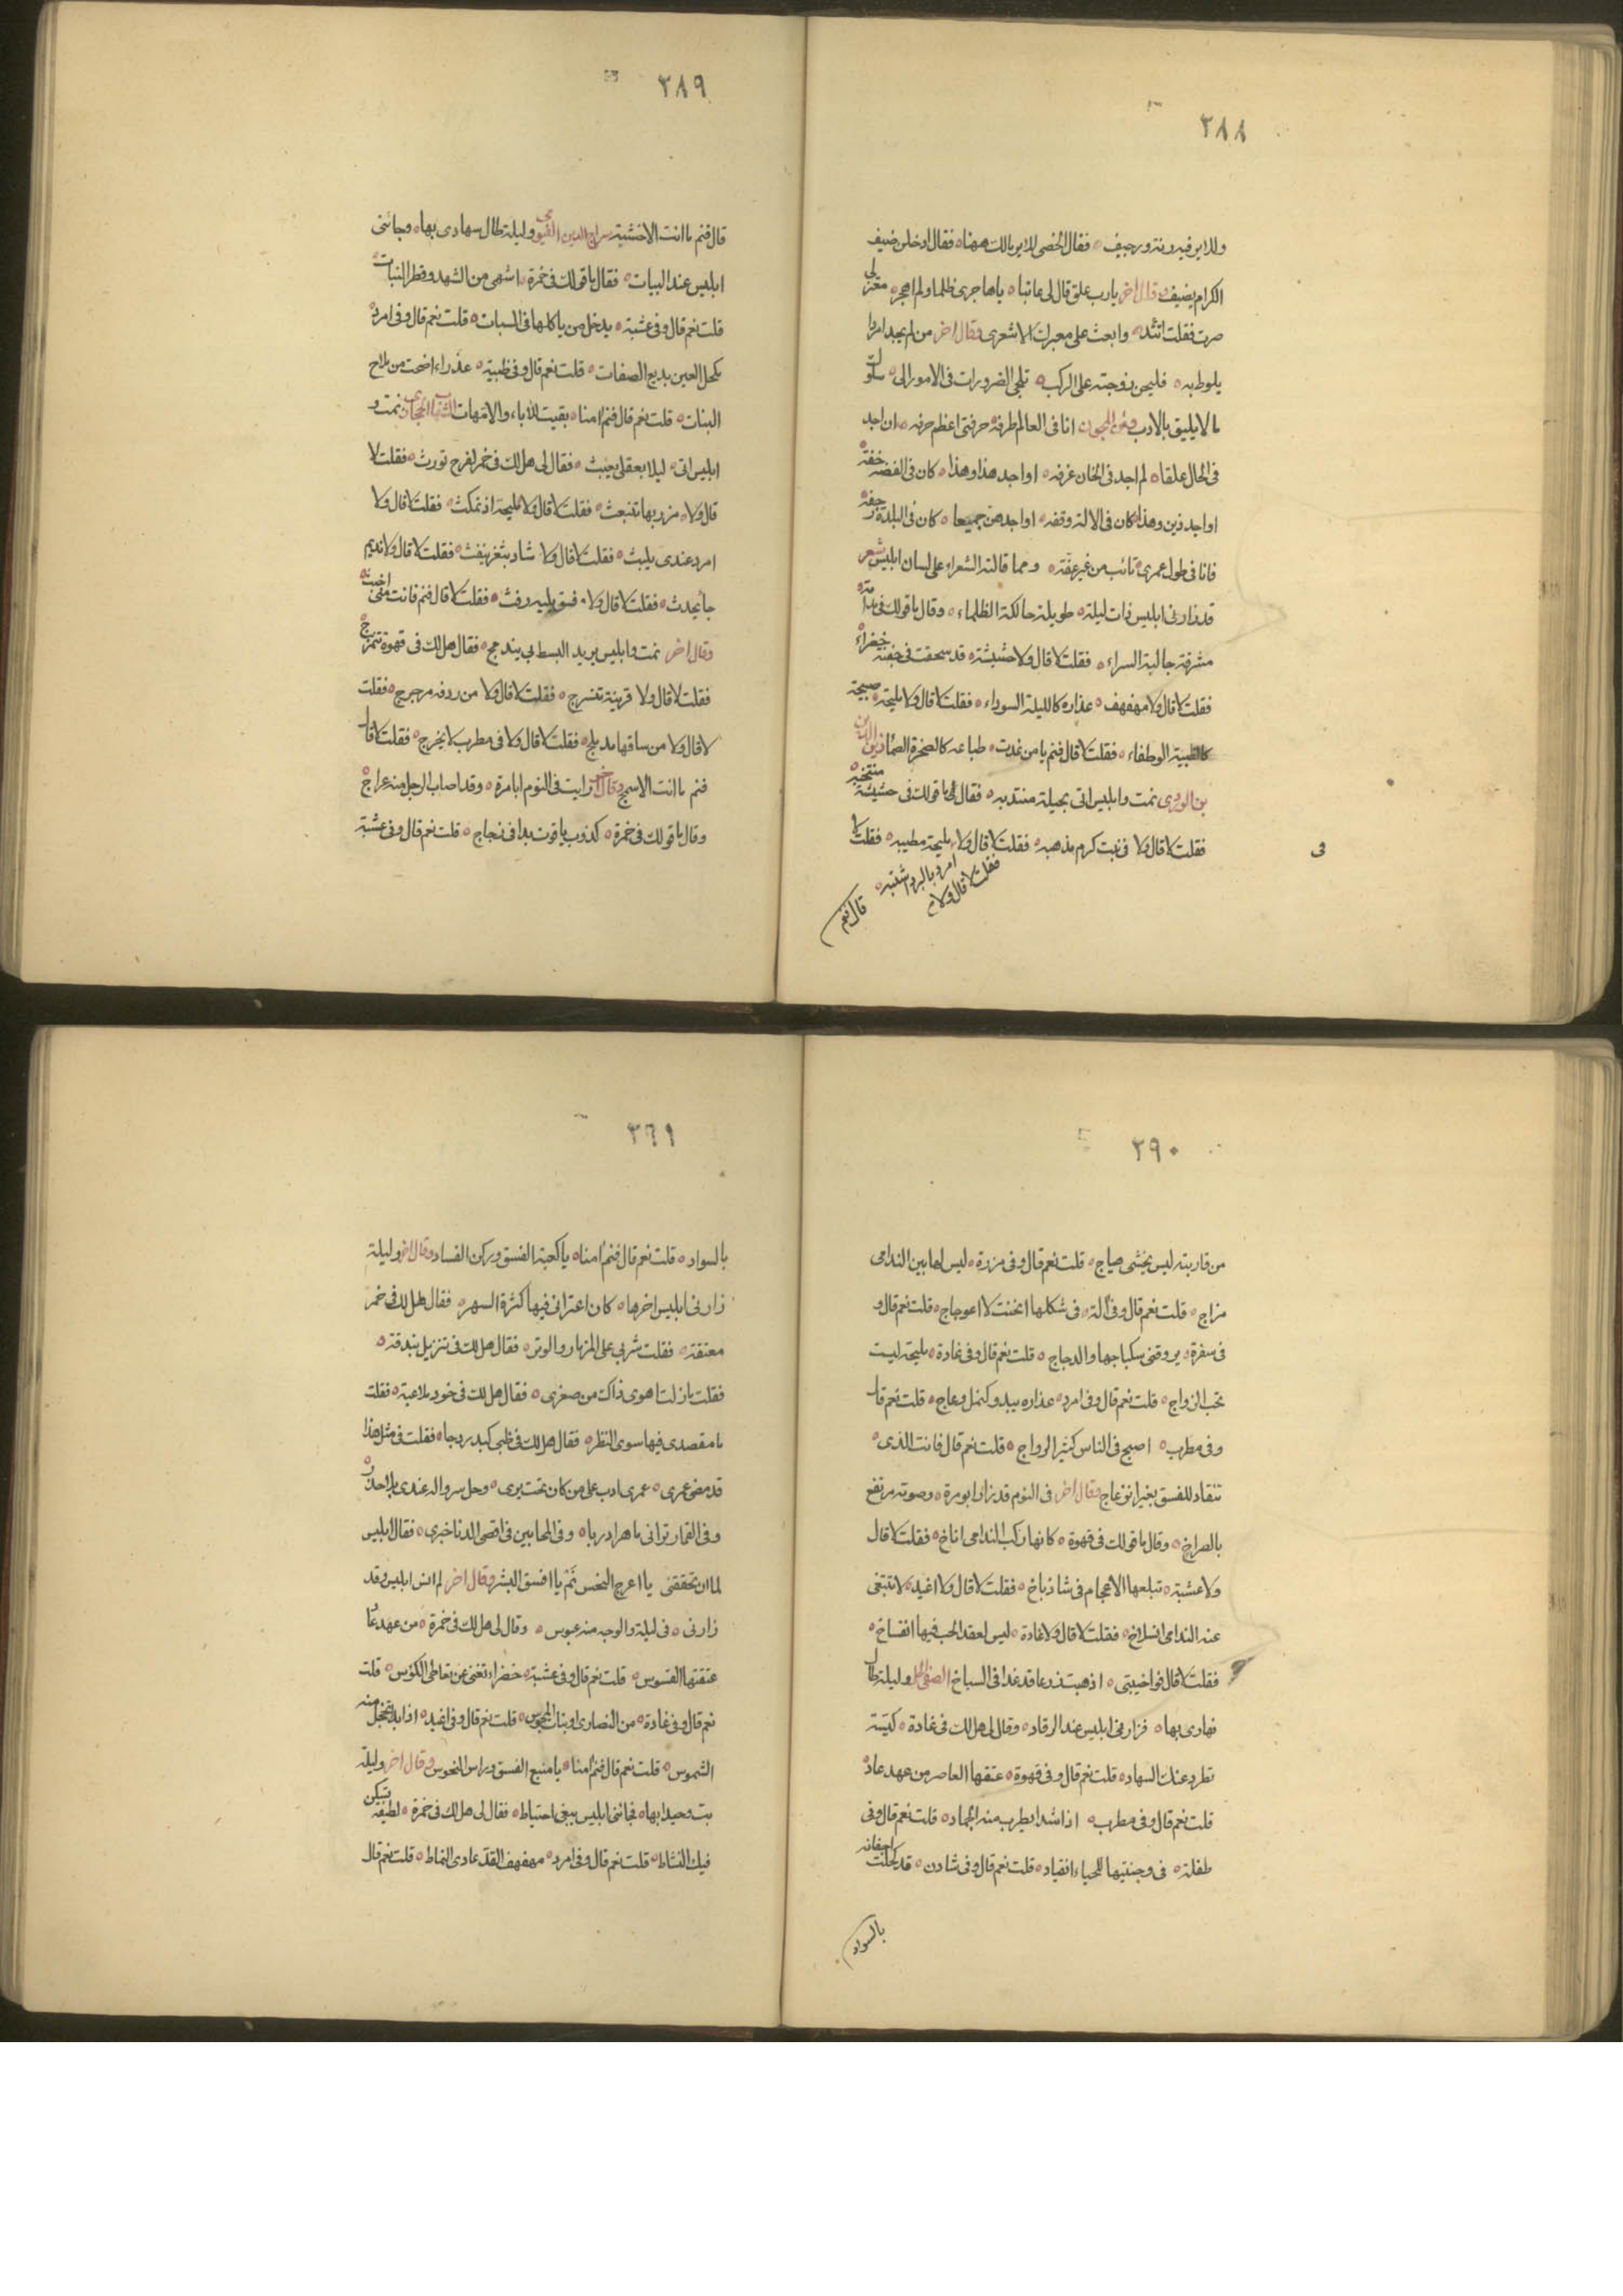 ٣٨٨
وللاير فيه رنة ورجيف فقال الخصى للاير مالك ههنا فقال ادخلن ضيف
الكرام يضيف وقال اخر يارب علق قال لى عاتبا ياهاجرى ظلما ولم اهجر معتزلى
صرت فقلت اتئد وابعث على معبرك الاشعرى وقال اخر من لم يجد امردا
يلوط به فليجن زوجته على الركب تلجى الضرورات فى الامور الى سلوك
مالايليق بالادب ومن المجون انا فى العالم طرفه حرفتى اعظم حرفه ان اجد
فى الحال علقا لم اجد فى الخان غرفه او اجد هذا وهذا كان فى الفضة خفة
او اجد ذين وهذا كان فى الالة وقفه او اجدهن جميعا كان فى البلدة رجفة
فانا فى طول عمرى تائب من غير عفة ومما قالته الشعراء على لسان ابليس شعر
قد زارنى ابليس ذات ليلة طويلة حالكة الظلماء وقال ماقولك فى مدامة
مشرقة جالية السراء فقلت لا قال ولا حشيشة قد سحقت فى جفنة خضراء
فقلت لا قال ولا مهفهف عذاره كالليلة السوداء فقلت لا قال ولا مليحة صبيحة
كالظبية الوطفاء فقلت لا قال فنم يامن غدت طباعه كالصخرة الصماء زين الدين
بن الوردى نمت وابليس اتى بحيلة منتدبه فقال لى ماقولك فى حشيشة منتخبه
فقلت لا قال ولا فى بنت كرم مذهبه فقلت لا قال ولا مليحة مطيبه فقلت لا
فقلت لا قال ولا امرد بالبدر اشتبه
قال فنم
فى
٣٨٩
قال فنم ماانت الاخشبة سراج الدين وليلة طال سهادى بها وجائنى
ابليس عند البيات فقال ماقولك فى خمرة اشهى من الشهد وقطر النبات
قلت نعم قال وفى عشبة يدخل من ياكلها فى السبات قلت نعم قال وفى امرد
مكحل العين بديع الصفات قلت نعم قال وفى ظبية عذراء اضحت من ملاح
البنات قلت نعم قال فنم امنا بقيت للاباء والامهات نمت و
ابليس اتى ليلا بعقلى يعبث فقال لى هل لك فى خمر لفرح تورث فقلت لا
قال ولا مزر بها تنبعث فقلت لا قال ولا مليحة اذ تمكث فقلت لا قال ولا
امرد عندى يلبث فقلت لا قال ولا شاد بثغر ينفث فقلت لا قال ولا نديم
جا يحدث فقلت لا قال ولا فسق يليه رفث فقلت لا قال فنم فانت منى اخبث
وقال اخر نمت وابليس يريد البسط بى يندمج فقال هل لك فى قهوة تمتزج
فقلت لا قال ولا قرينة تنسرج فقلت لا قال ولا من ردفه مرجرج فقلت
لا قال ولا من ساقها مدملج فقلت لا قال ولا فى مطرب لا يخرج فقلت لا قال
فنم ماانت الا سمج وقال اخر رايت فى النوم ابا مرة وقد اصاب الرجل منه عراج
وقال ماقولك فى خمرة كذوب ياقوت بدا فى زجاج قلت نعم قال وفى عشبة
٣٩٠
من قاربته ليس يخشى هياج قلت نعم قال وفى مزرة ليس لها بين الندامى
مزاج قلت نعم قال وفى آلة فى شكلها انحنت لا اعوجاج قلت نعم قال و
فى سفرة يروقنى سكباجها والدجاج قلت نعم قال وفى غادة مليحة ليست
تحب الزواج قلت نعم قال وفى امرد عذاره يبدو كنمل وعاج قلت نعم قال
وفى مطرب اصبح فى الناس كثير الرواج قلت نعم قال فانت الذى
تنقاد للفسق بغير انزعاج وقال اخر فى النوم قد زار ابو مرة وصوته مرتفع
بالصراخ وقال ماقولك فى قهوة كانها ركب الندامى اناخ فقلت لا قال
ولا عشبة تبلعها الاعجام فى شاذباخ فقلت لا قال ولا اغيد لا تبتغى
عنه الندامى انسلاخ فقلت لا قال ولا غادة ليس لعقد الحب فيها انفساخ
فقلت لا قال فواخيبتى اذهبت زرعا قد غدا فى السباخ الصفى الحلى وليلة طال
نهادى بها فزارنى ابليس عند الرقاد وقال لى هل لك فى غادة
تطرد عنك السهاد قلت نعم قال وفى قهوة عتقها العاصر من عهد عاد
قلت نعم قال وفى مطرب اذا شدا يطرب منه الجماد قلت نعم قال وفى
طفلة فى وجنتيها للحياء انقياد قلت نعم قال وفى شادن قد كحلت اجفانه
بالسواد
٣٩١
بالسواد قلت نعم قال فنم امنا ياكعبة الفسق وركن الفساد وقال اخر وليلة
زارنى ابليس اخرها كان اعترانى فيها كثرة السهر فقال هل لك فى خمر
معتقة فقلت شربى على المزمار والوتر فقال هل لك فى تنزيل بندقة
فقلت مازلت اهوى ذاك من صغرى فقال هل لك فى خود ملاعبة فقلت
مامقصدى فيها سوى النظر فقال هل لك فى ظبى كبدر دجا فقلت فى مثل هذا
قد مضى عمرى عمرى ادب على من كان تحت يدى وحل سرواله عندى بلا حذر
وفى القمار ترانى ماهرا دربا وفى المحابين فى اقصى الدنا خبرى فقال ابليس
لما ان تحققنى يا اعرج النحس نم يا افسق البشر وقال اخر لم انس ابليس وقد
زارنى فى ليلة والوجه منه عبوس وقال لى هل لك فى خمرة من عهد عاد
عتقتها القسوس قلت نعم قال وفى عشبة خضراء تغنى عن تعاطى الكؤس قلت
نعم قال وفى غادة من النصارى او بنات المجوس قلت نعم قال وفى اغيد اذا بدا تخجل منه
الشموس قلت نعم قال فنم امنا يامنبع الفسق وراس النحوس وقال اخر وليلة
بت وحيدا بها فجائنى ابليس يبغى احتياط فقال لى هل لك فى خمرة لطيفة
فيك النشاط قلت نعم قال وفى امرد مهفهف القد عادى النماط قلت نعم قال